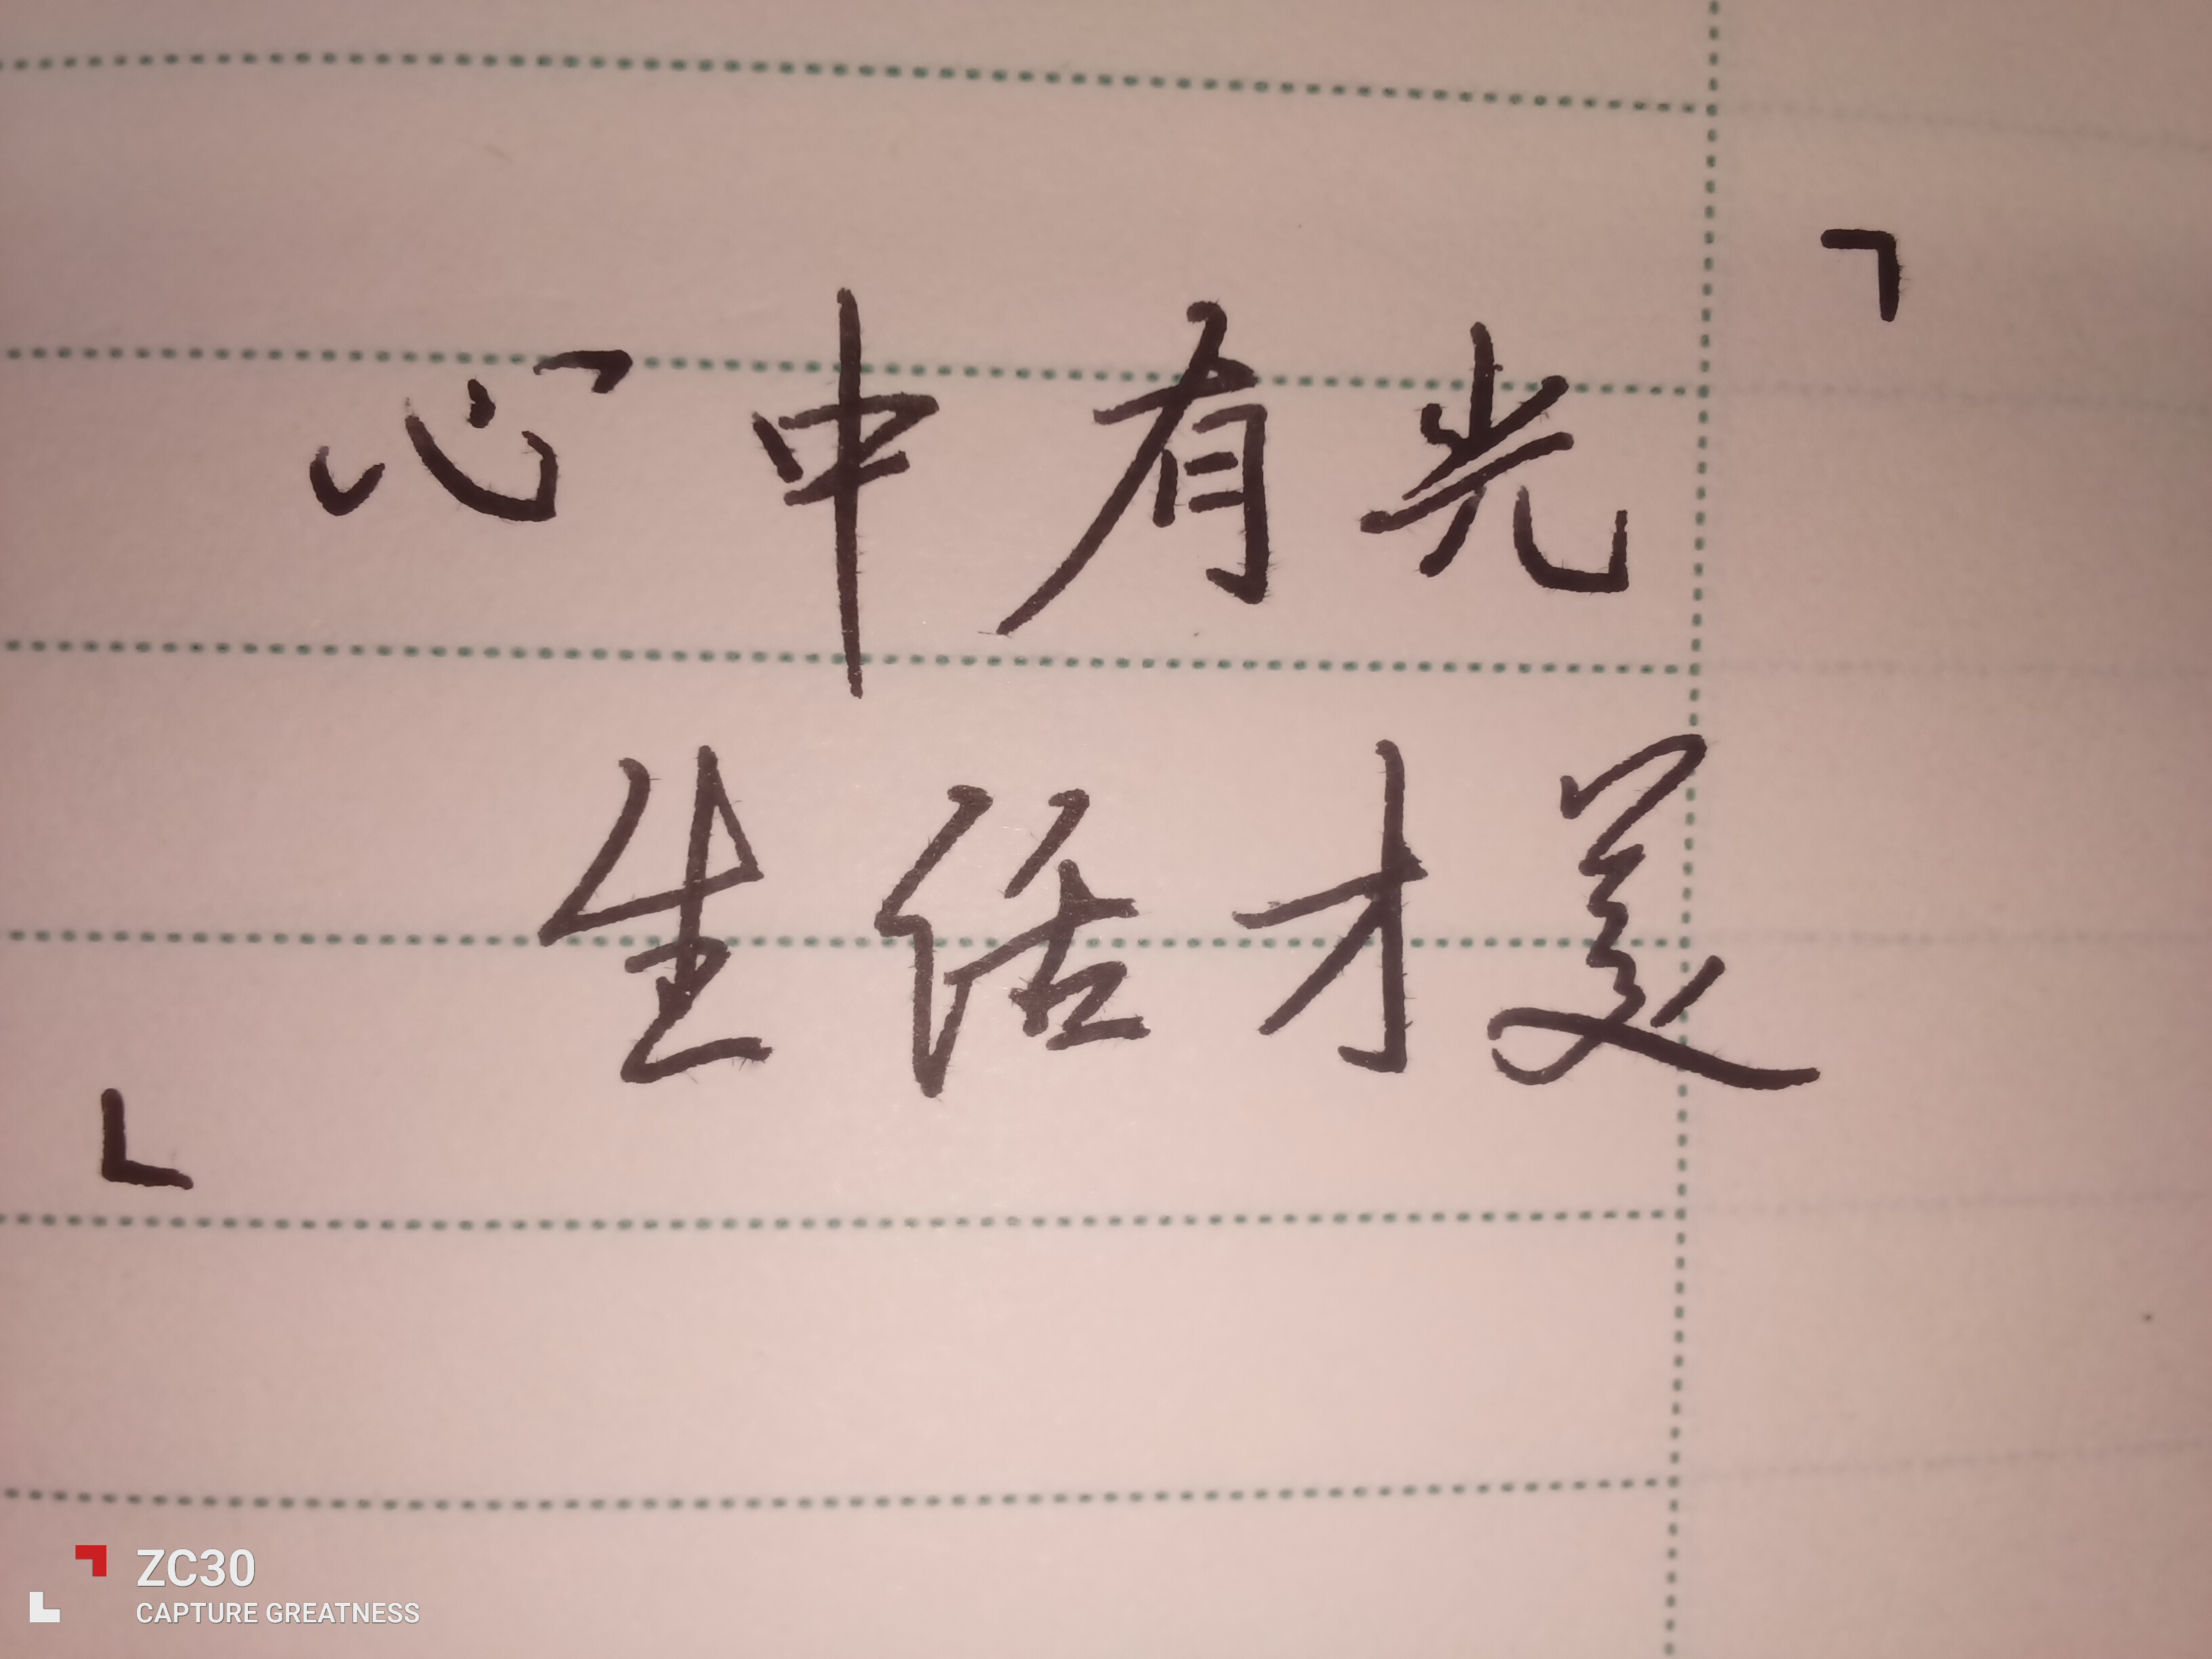 心中有光
生活才美
ZC30
CAPTURE GREATNESS